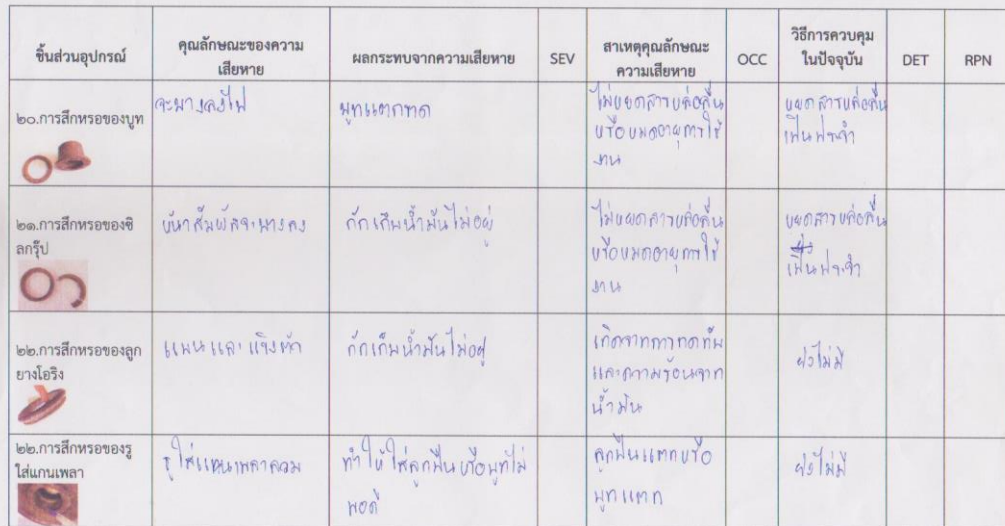 ชิ้นส่วนอุปกรณ์
คุณลักษณะของความ
เสียหาย
ผลกระทบจากความเสียหาย
SEV
สาเหตุคุณลักษณะ
ความเสียหาย
OCC
วิธีการควบคุม
ในปัจจุบัน
DET
RPN
๒๐.การสึกหรอของบูท
จะบางลงไป
บูทแตกหัก
ไม่หยดสารหล่อลื่น
หรือหมดอายุการใช้
งาน
หยดสารหล่อลื่น
เป็นประจำ
๒๑.การสึกหรอของซิ
ลกรุ๊ป
หน้าสัมผัสจะบางลง
กักเก็บน้ำมันไม่อยู่
ไม่หยดสารหล่อลื่น
หรือหมดอายุการใช้
งาน
หยดสารหล่อลื่น
เป็นประจำ
๒๒.การสึกหรอของลูก
ยางโอริง
แบนและแข็งตัว
กักเก็บน้ำมันไม่อยู่
เกิดจากการกดทับ
และความร้อนจาก
น้ำมัน
ยังไม่มี
๒๒.การสึกหรอของรู
ใส่แกนเพลา
รูใส่แกนเพลาหลวม
ทำให้ใส่ลูกปืนหรือบูทไม่
พอดี
ลูกปืนแตกหรือ
บูทแตก
ยังไม่มี